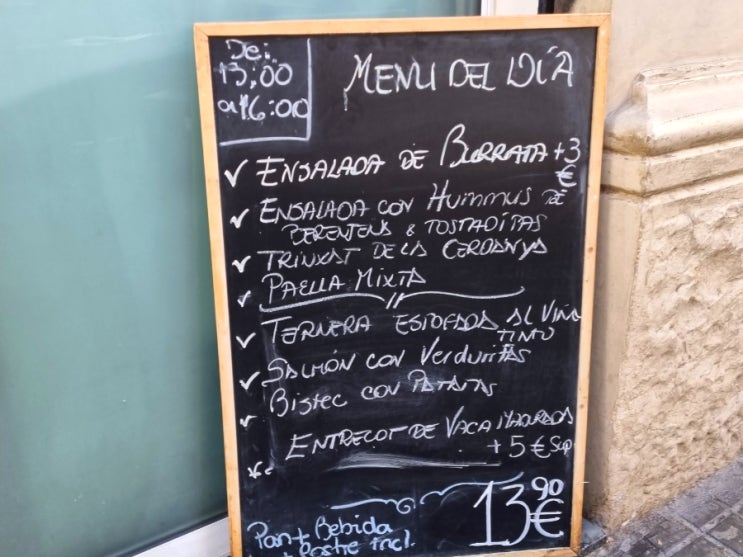 De:
13:00
a 16:00
MENU DEL DÍA
✓ ENSALADA DE BURRATA +3
€
✓ ENSALADA CON HUMMUS DE
BERENJENA & TOSTADITAS
✓ TRINXAT DE LA CERDANYA
✓ PAELLA MIXTA
✓ TERNERA ESTOFADA AL VINO
TINTO
✓ SALMÓN CON Verduritas
✓ BISTEC CON PATATAS
* ENTRECOT DE VACA MADURADA
+ 5 € Sup
13,90 €
Pan + Bebida
+ Postre incl.